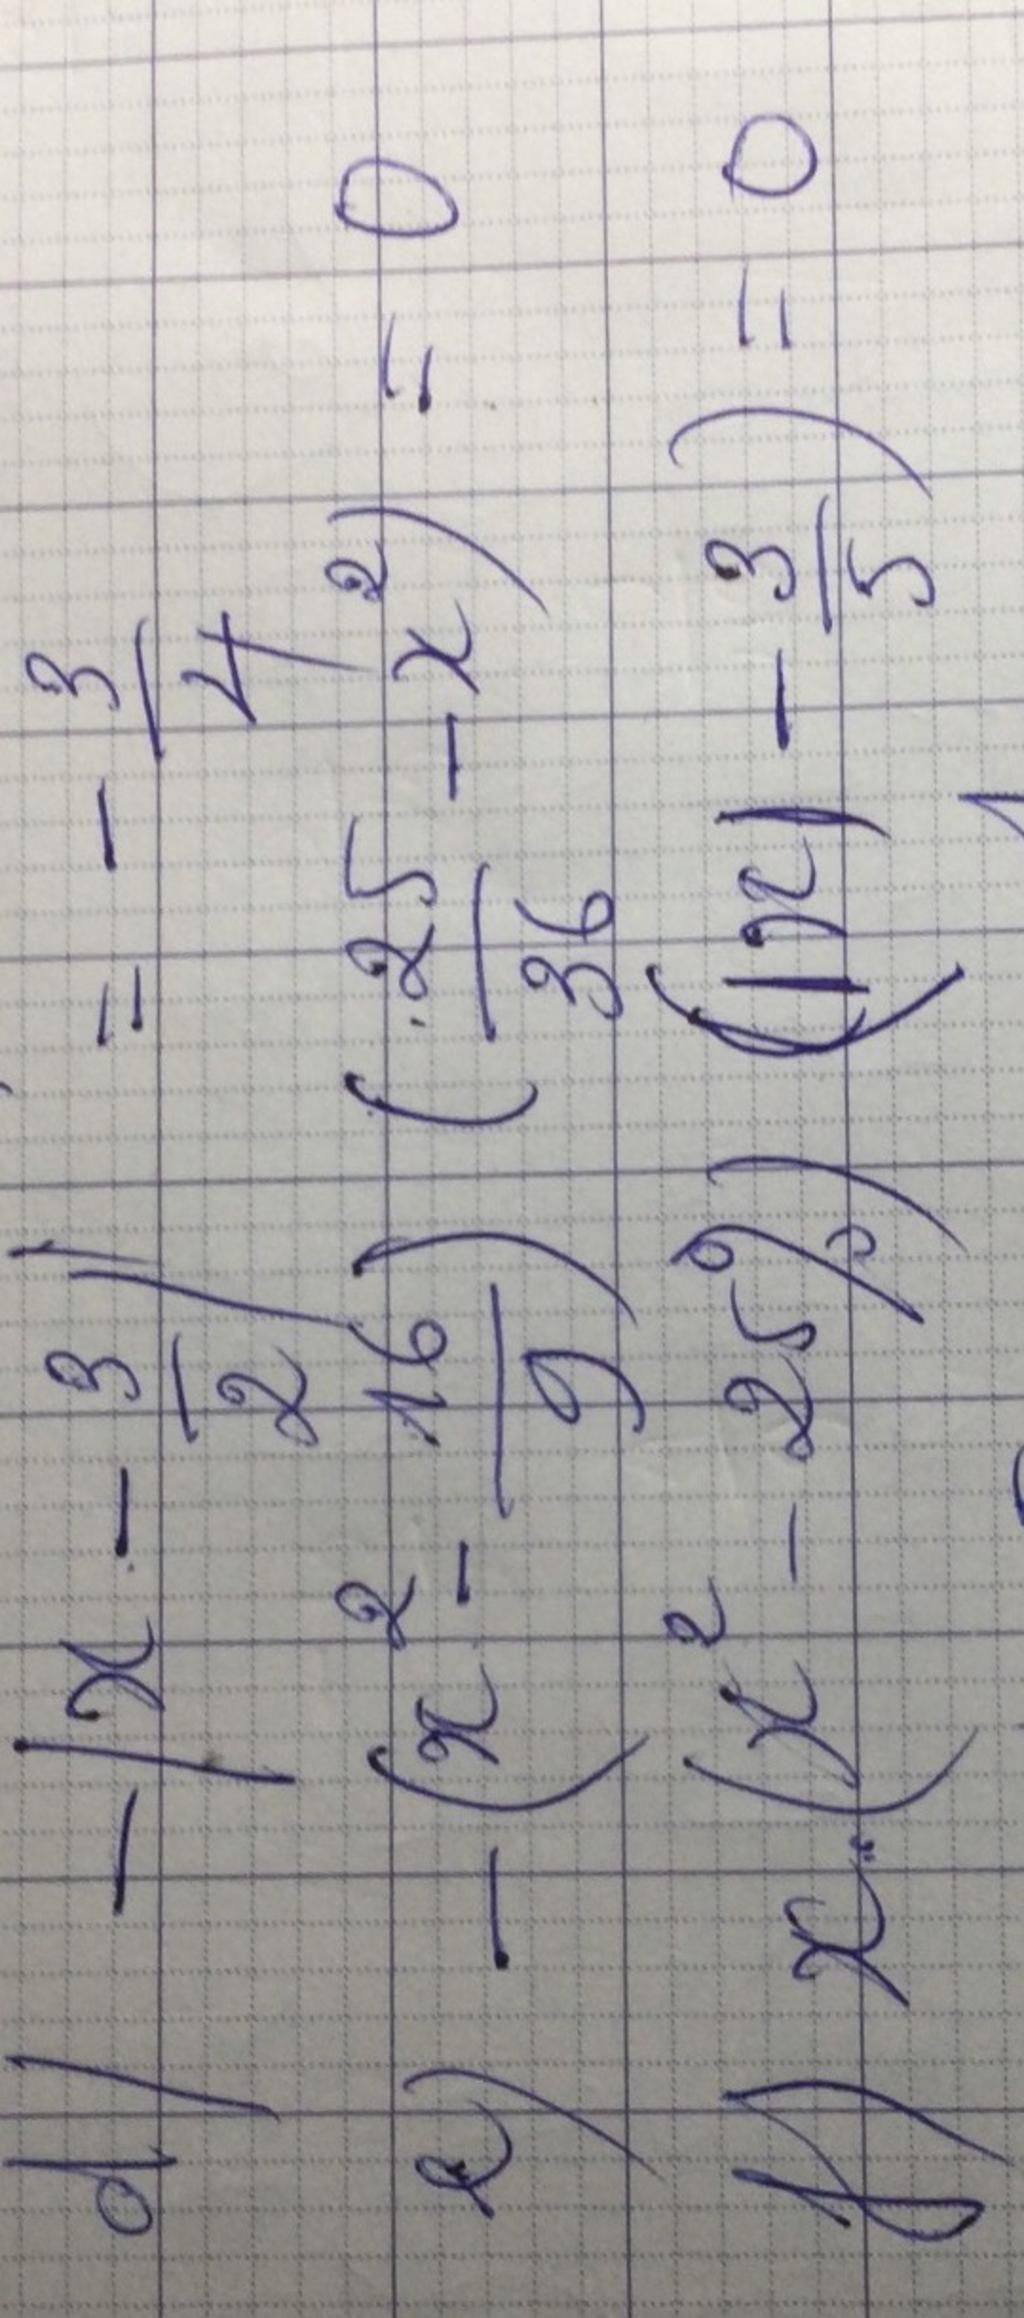 d) - |x - 3/2| = - 3/4
e) - (x² - 16/9) (25/36 - x²) = 0
f) x (x² - 25) (|x| - 3/5) = 0